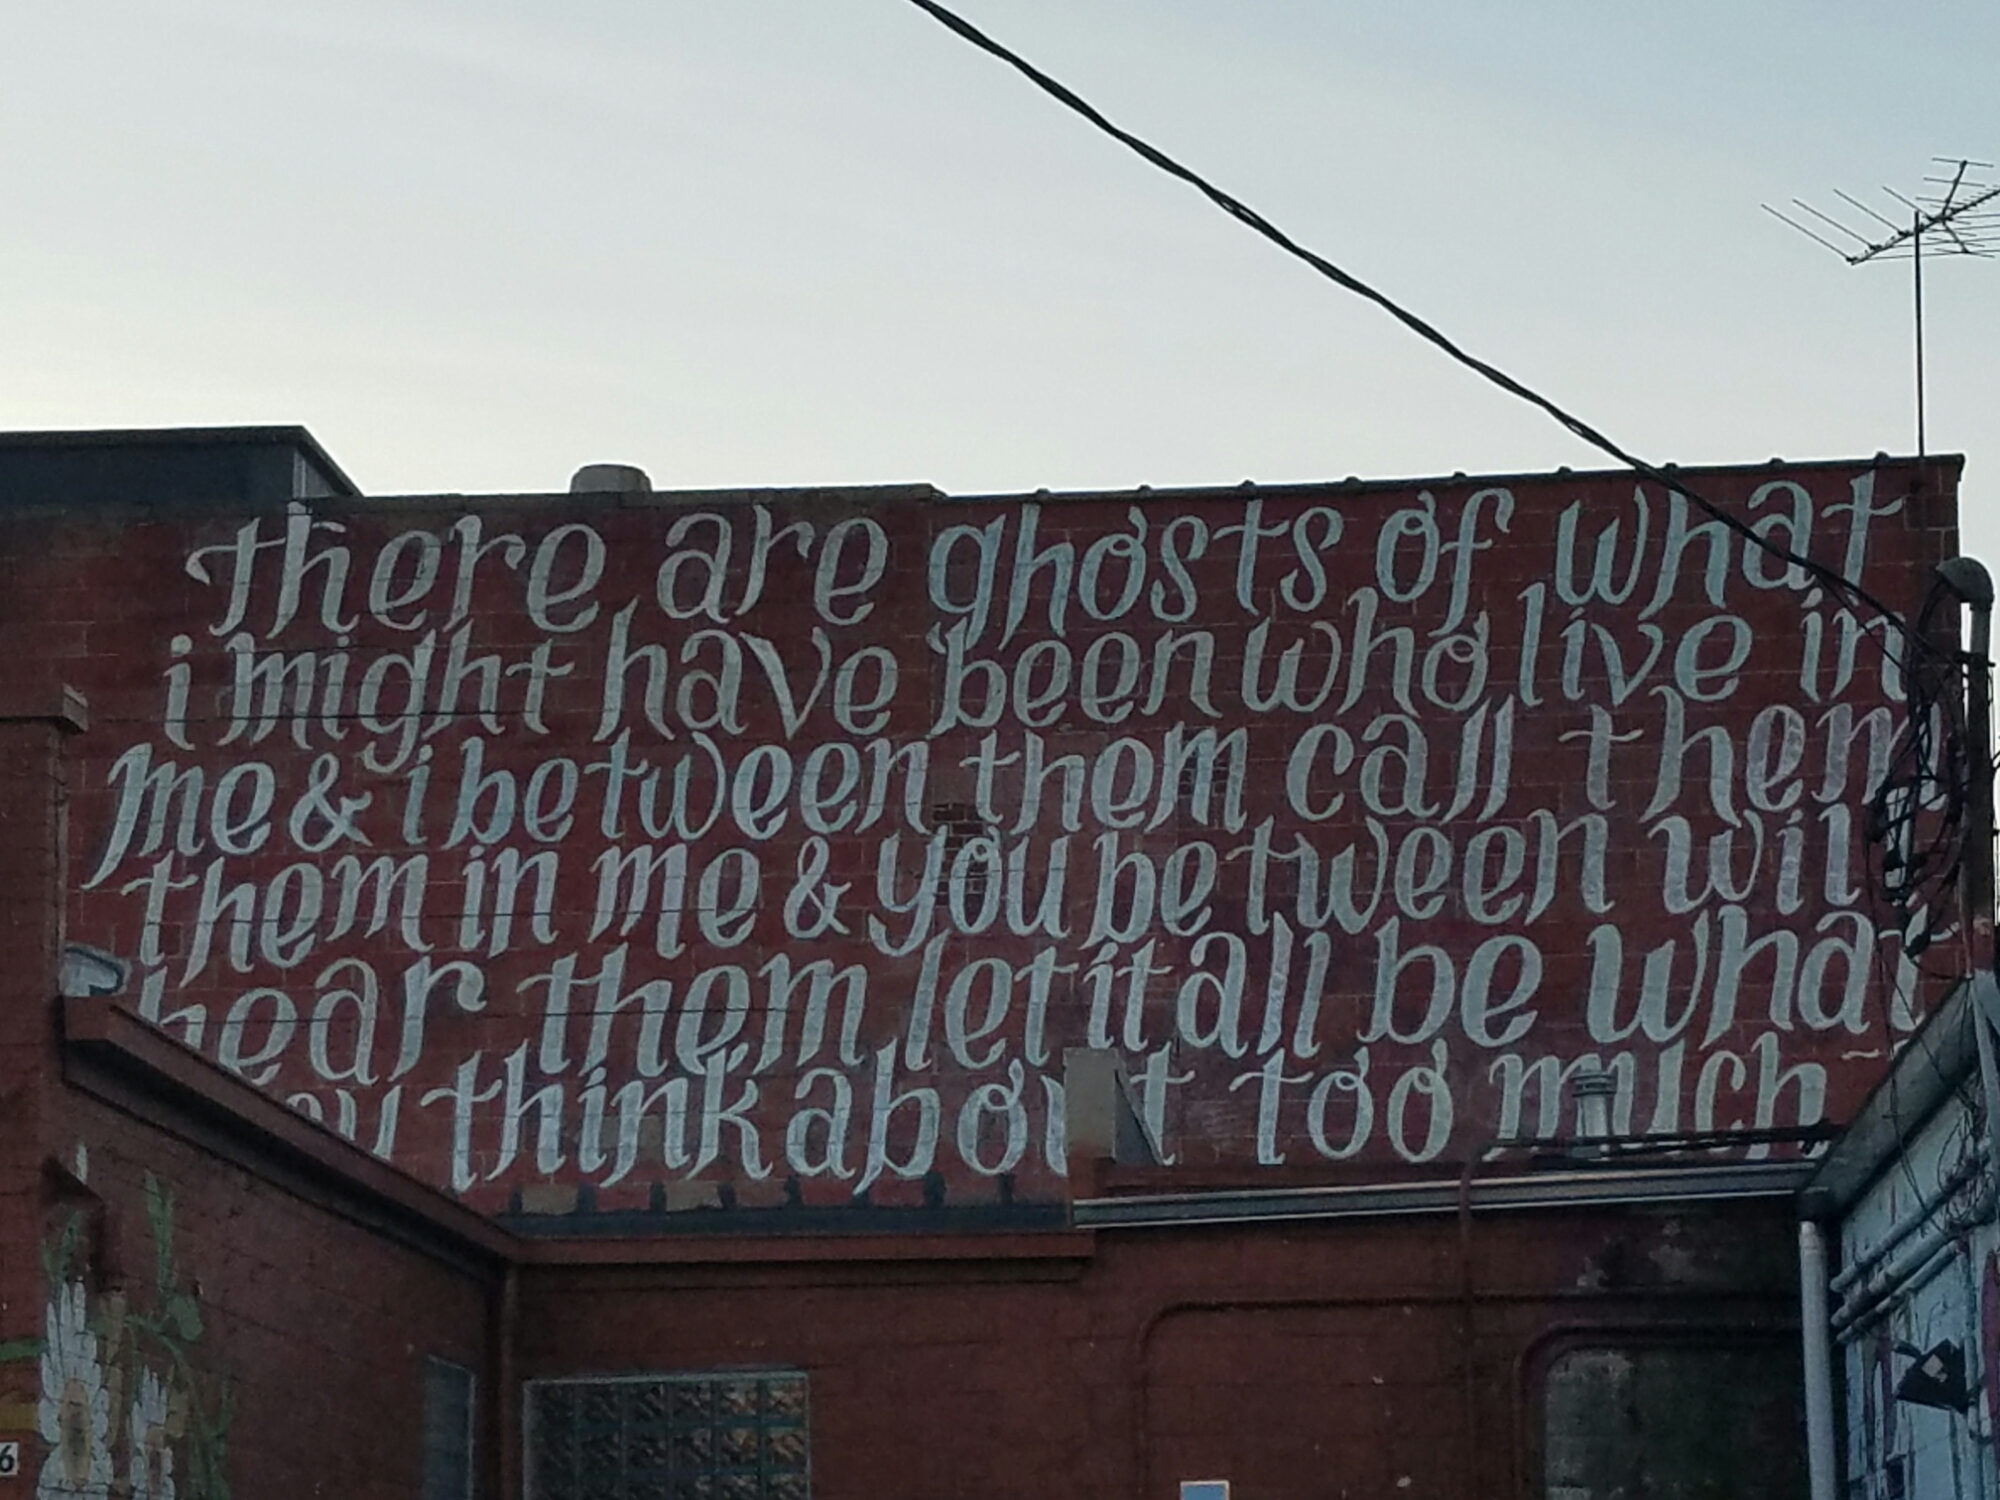 there are ghosts of what
i might have been who live in
me & i between them call them
them in me & you between will
hear them let it all be what
think about too much
6